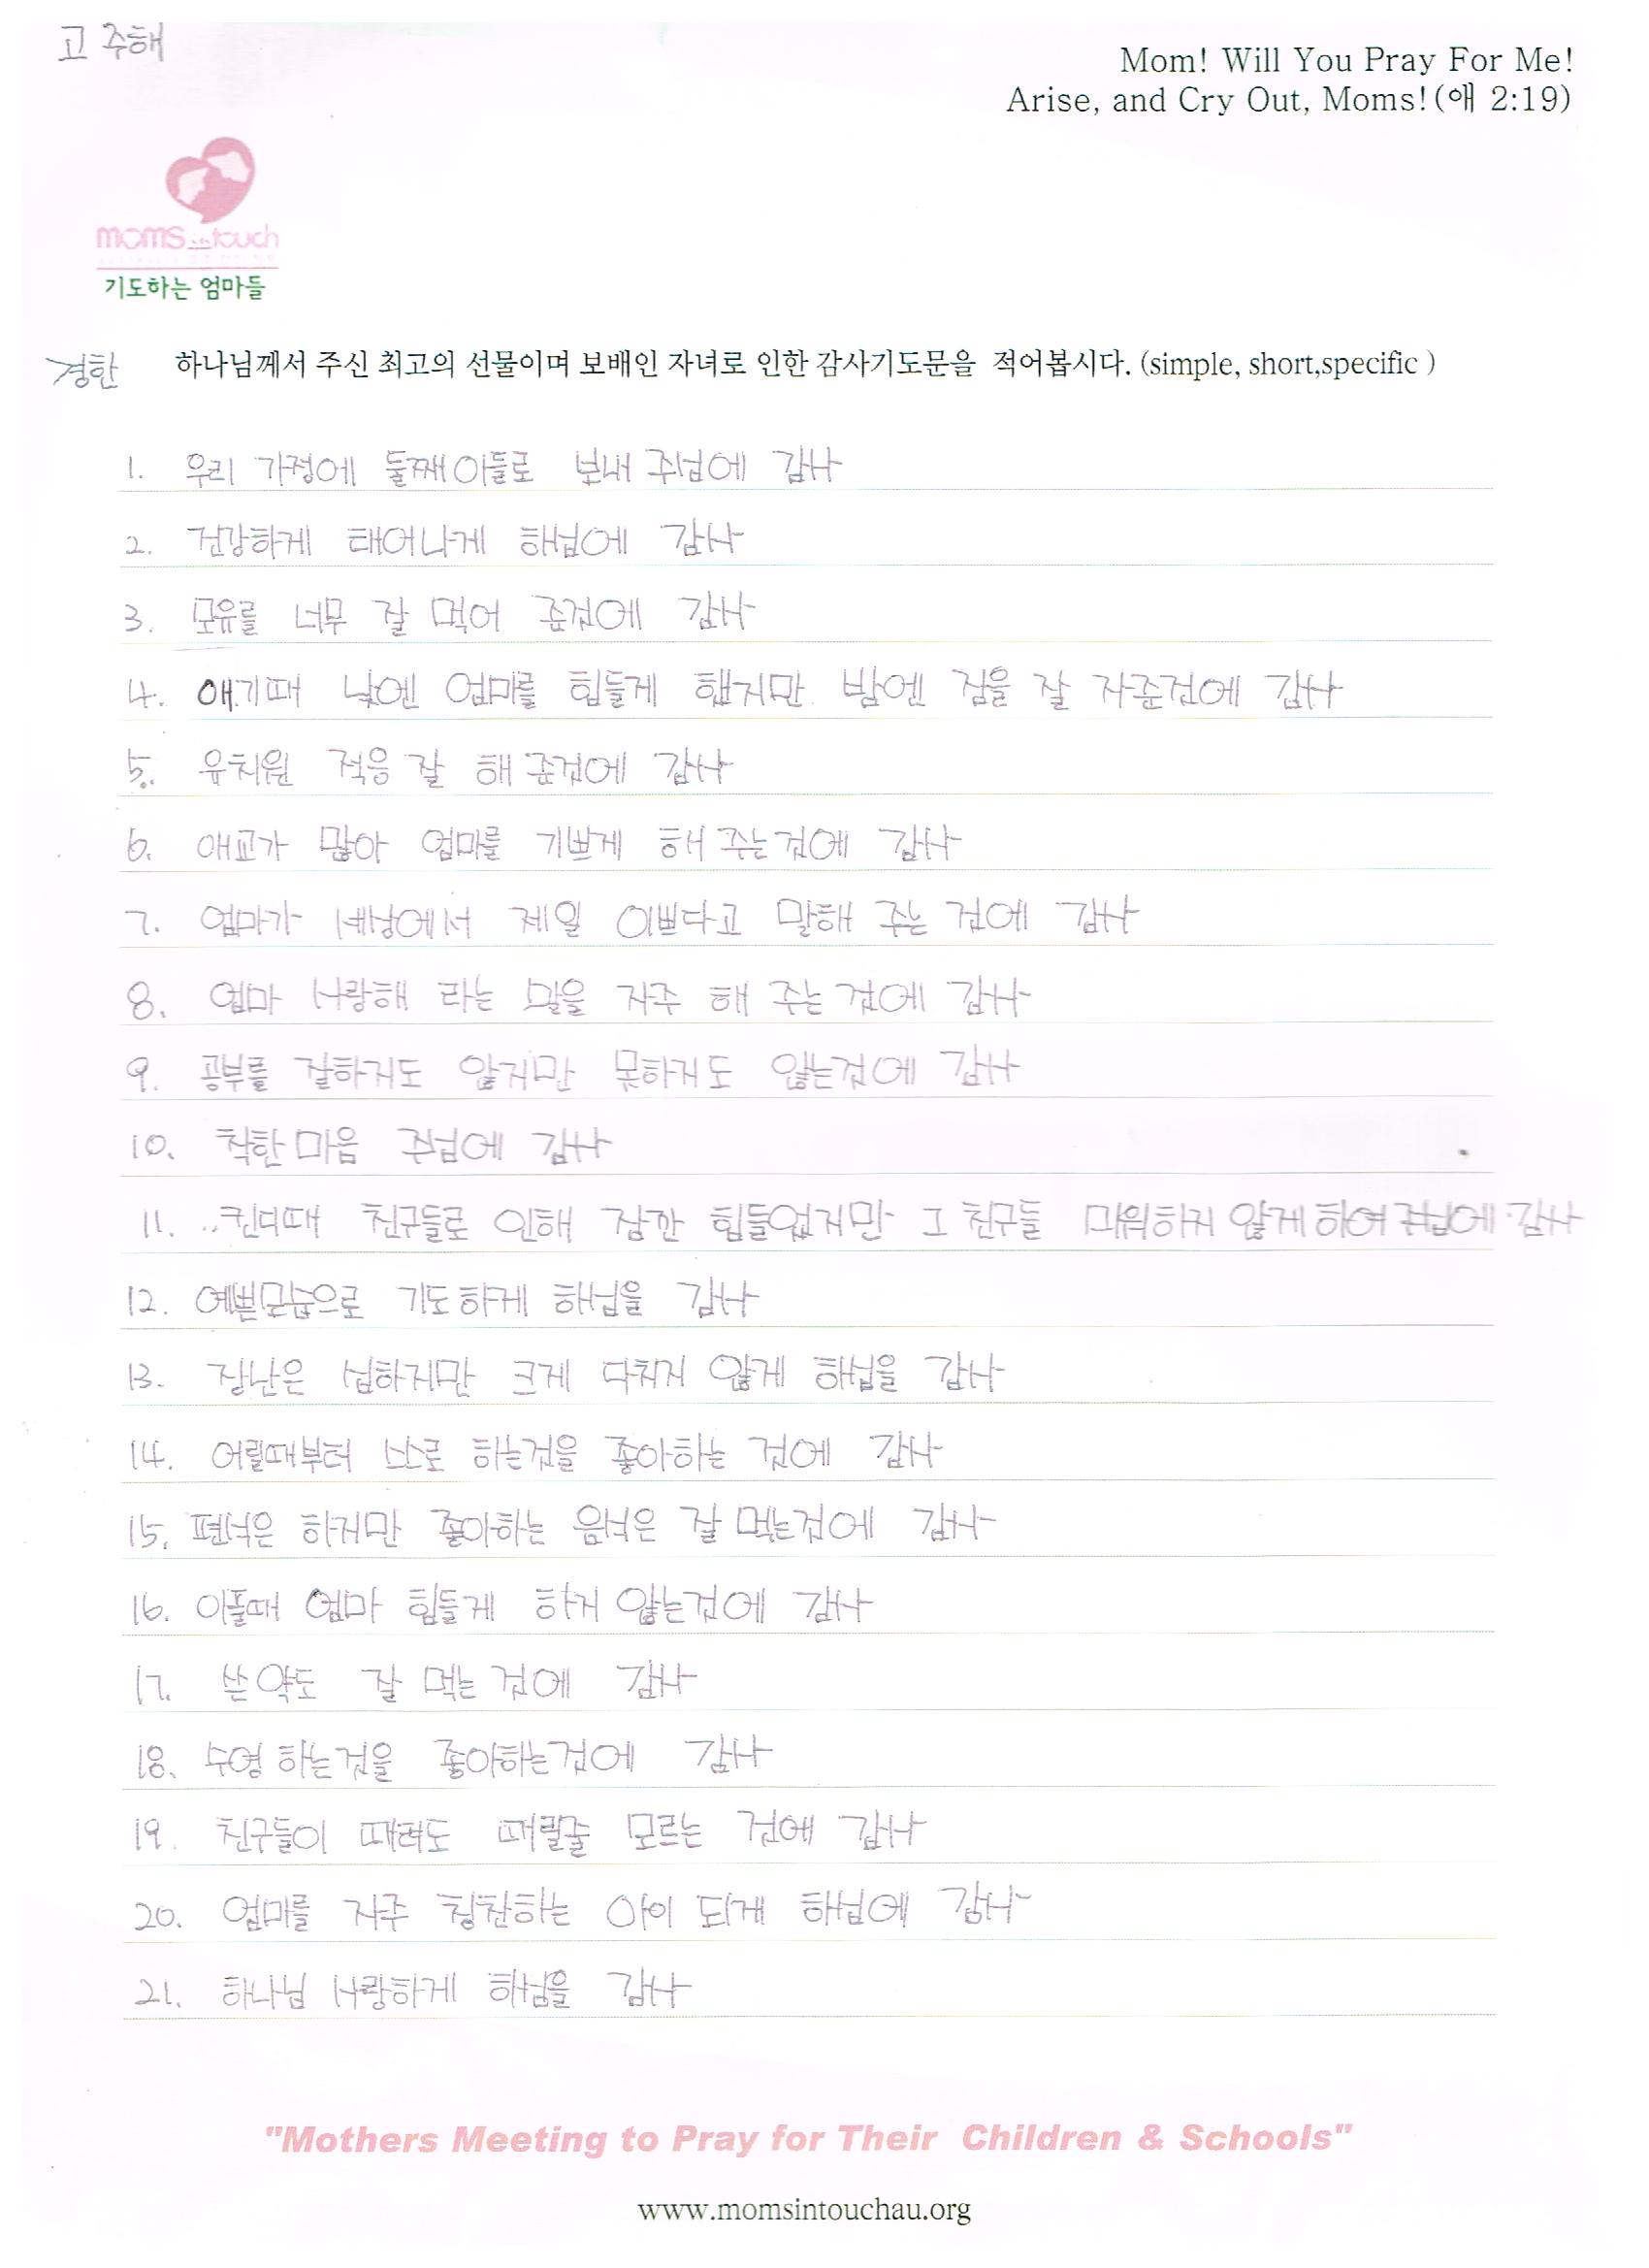 고 주해
Mom! Will You Pray For Me!
Arise, and Cry Out, Moms!(애 2:19)
moms in touch
기도하는 엄마들
경한 하나님께서 주신 최고의 선물이며 보배인 자녀로 인한 감사기도문을 적어봅시다. (simple, short,specific )
1. 우리 가정에 둘째아들로 보내 주심에 감사
2. 건강하게 태어나게 하심에 감사
3. 모유를 너무 잘 먹어 준것에 감사
4. 애기때 낮엔 엄마를 힘들게 했지만 밤엔 잠을 잘 자준것에 감사
5. 유치원 적응 잘 해 준것에 감사
6. 애교가 많아 엄마를 기쁘게 해 주는것에 감사
7. 엄마가 세상에서 제일 이쁘다고 말해 주는 것에 감사
8. 엄마 사랑해 라는 말을 자주 해 주는것에 감사
9. 공부를 잘하지도 않지만 못하지도 않는것에 감사
10. 착한마음 주심에 감사
11. 킨디때 친구들로 인해 잠깐 힘들었지만 그 친구들 미워하지 않게하여 주심에 감사
12. 예쁜모습으로 기도하게 하심을 감사
13. 장난은 심하지만 크게 다치지 않게 하심을 감사
14. 어릴때부터 스스로 하는것을 좋아하는 것에 감사
15. 편식은 하지만 좋아하는 음식은 잘 먹는것에 감사
16. 아플때 엄마 힘들게 하지 않는것에 감사
17. 쓴약도 잘 먹는 것에 감사
18. 수영하는것을 좋아하는것에 감사
19. 친구들이 때려도 때릴줄 모르는 것에 감사
20. 엄마를 자주 칭찬하는 아이 되게 하심에 감사
21. 하나님 사랑하게 하심을 감사
"Mothers Meeting to Pray for Their Children & Schools"
www.momsintouchau.org